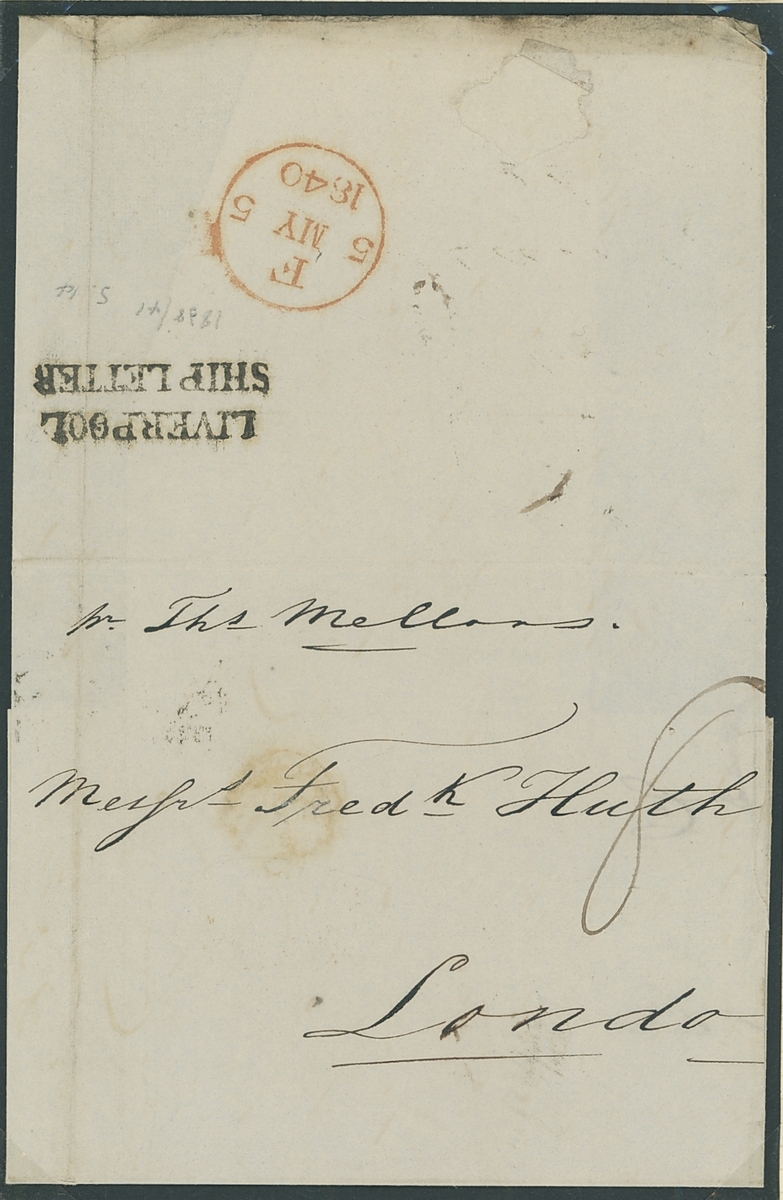 F
5 MY 5
1840
1838/41
LIVERPOOL
SHIP LETTER
pr Ths Mellors.
Messrs Fredk Huth
8
Londo